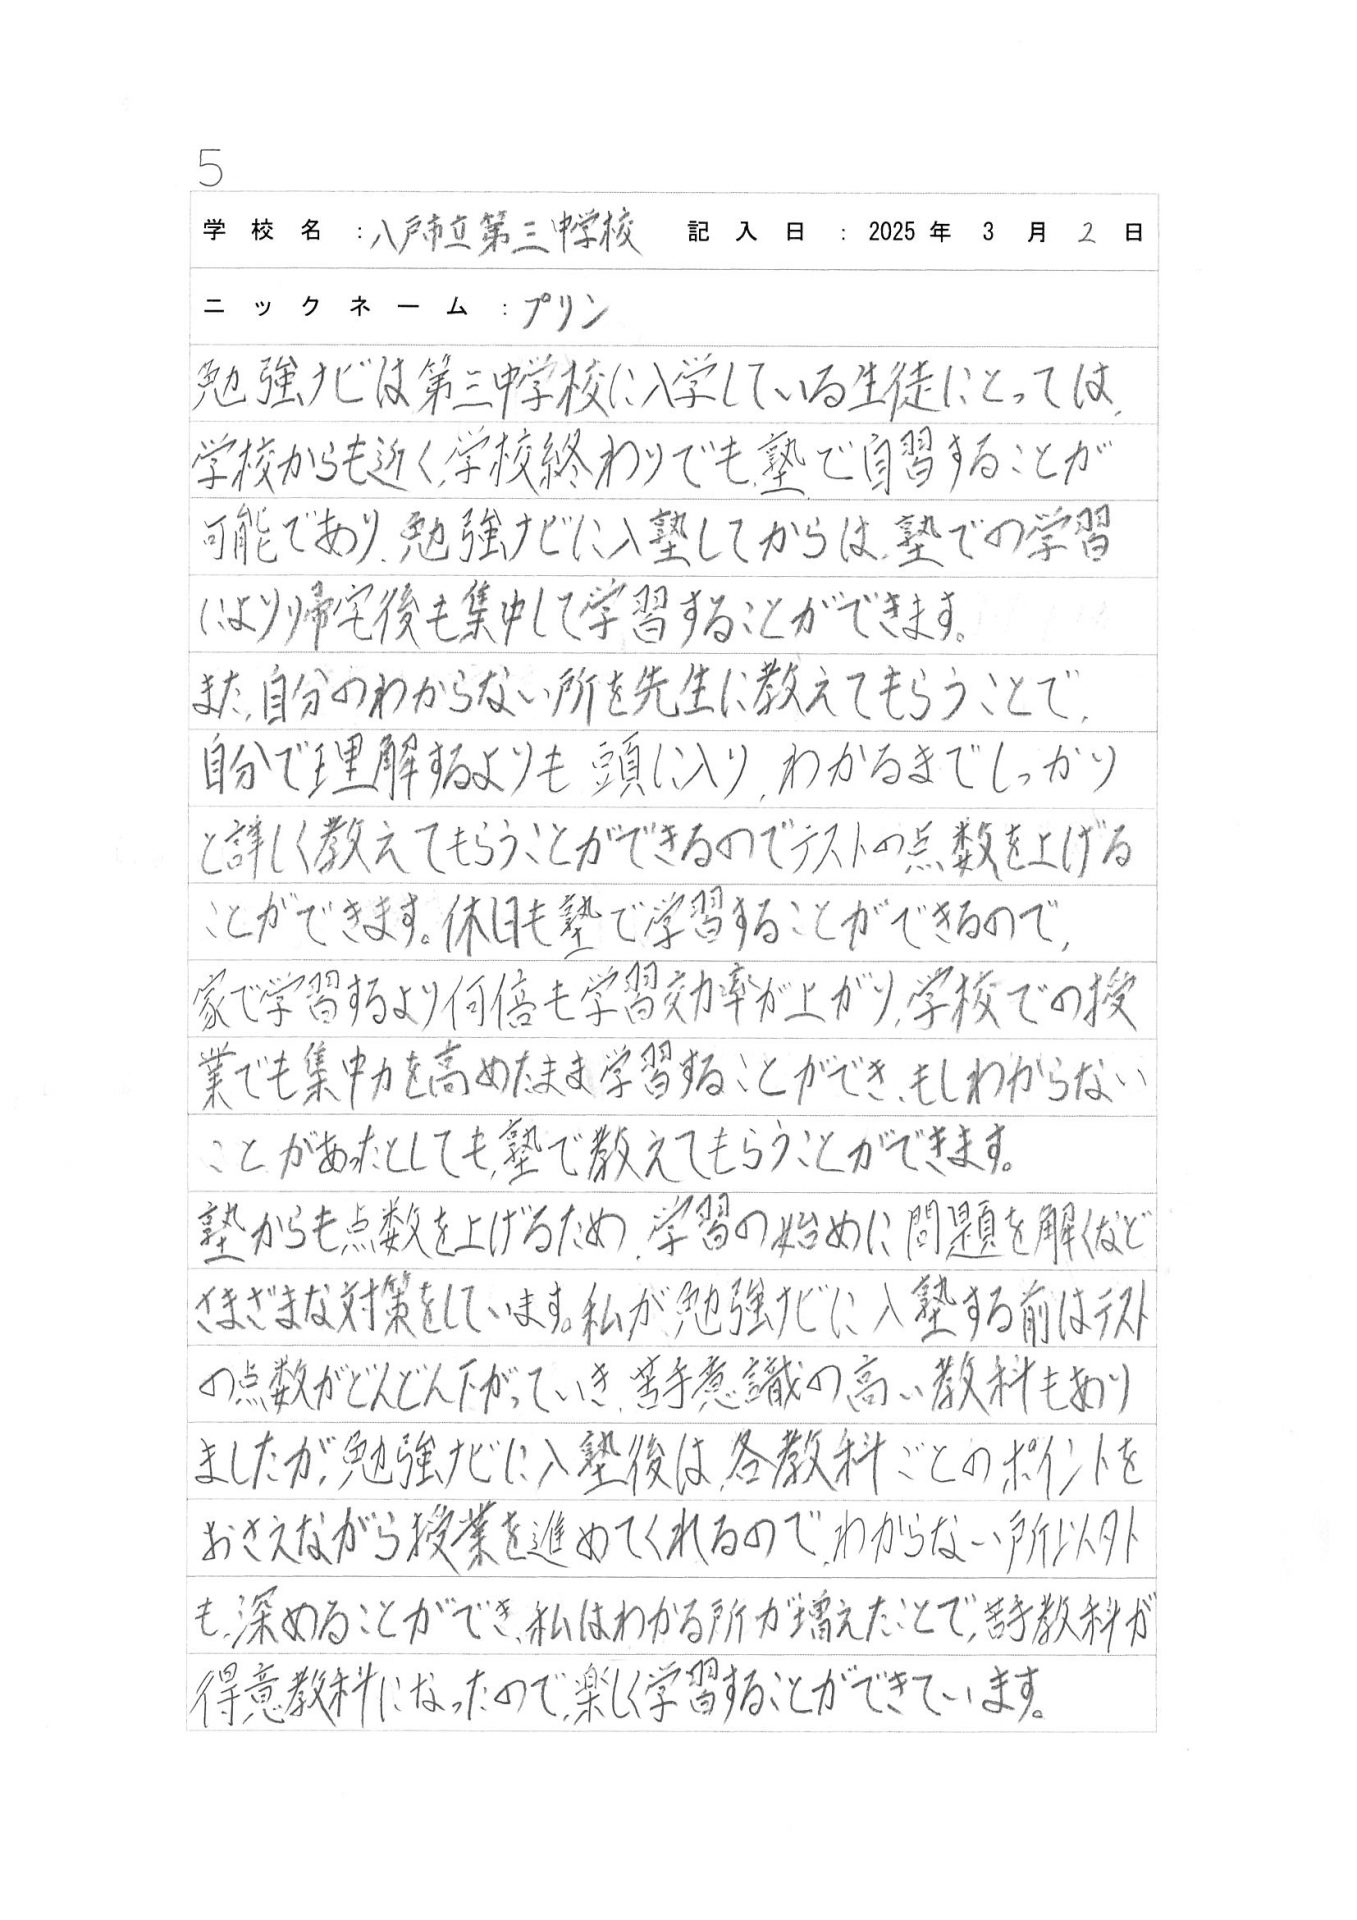 5
学校名：八戸市立第三中学校 記入日：2025年3月2日
ニックネーム：プリン
勉強ナビは第三中学校に入学している生徒にとっては、
学校からも近く、学校終わりでも、塾で自習することが
可能であり、勉強ナビに入塾してからは、塾での学習
により帰宅後も集中して学習することができます。
また、自分のわからない所を先生に教えてもらうことで、
自分で理解するよりも頭に入り、わかるまでしっかり
と詳しく教えてもらうことができるのでテストの点数を上げる
ことができます。休日も塾で学習することができるので、
家で学習するより何倍も学習効率が上がり、学校での授
業でも集中力を高めたまま学習することができ、もしわからない
ことがあったとしても、塾で教えてもらうことができます。
塾からも点数を上げるため、学習の始めに問題を解くなど
さまざまな対策をしています。私が、勉強ナビに入塾する前はテスト
の点数がどんどん下がっていき、苦手意識の高い教科もあり
ましたが、勉強ナビに入塾後は、各教科ごとのポイントを
おさえながら授業を進めてくれるので、わからない所以外
も、深めることができ、私はわかる所が増えたことで、苦手教科が
得意教科になったので、楽しく学習することができています。